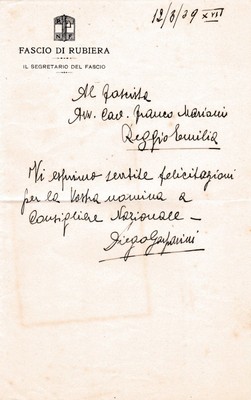 12/6/39 XVII
P N F
FASCIO DI RUBIERA
IL SEGRETARIO DEL FASCIO
Al fascista
Avv. Cav. Franco Mariani
Reggio Emilia
Vi esprimo sentite felicitazioni
per la Vostra nomina a
Consigliere Nazionale -
Diego Gasparini